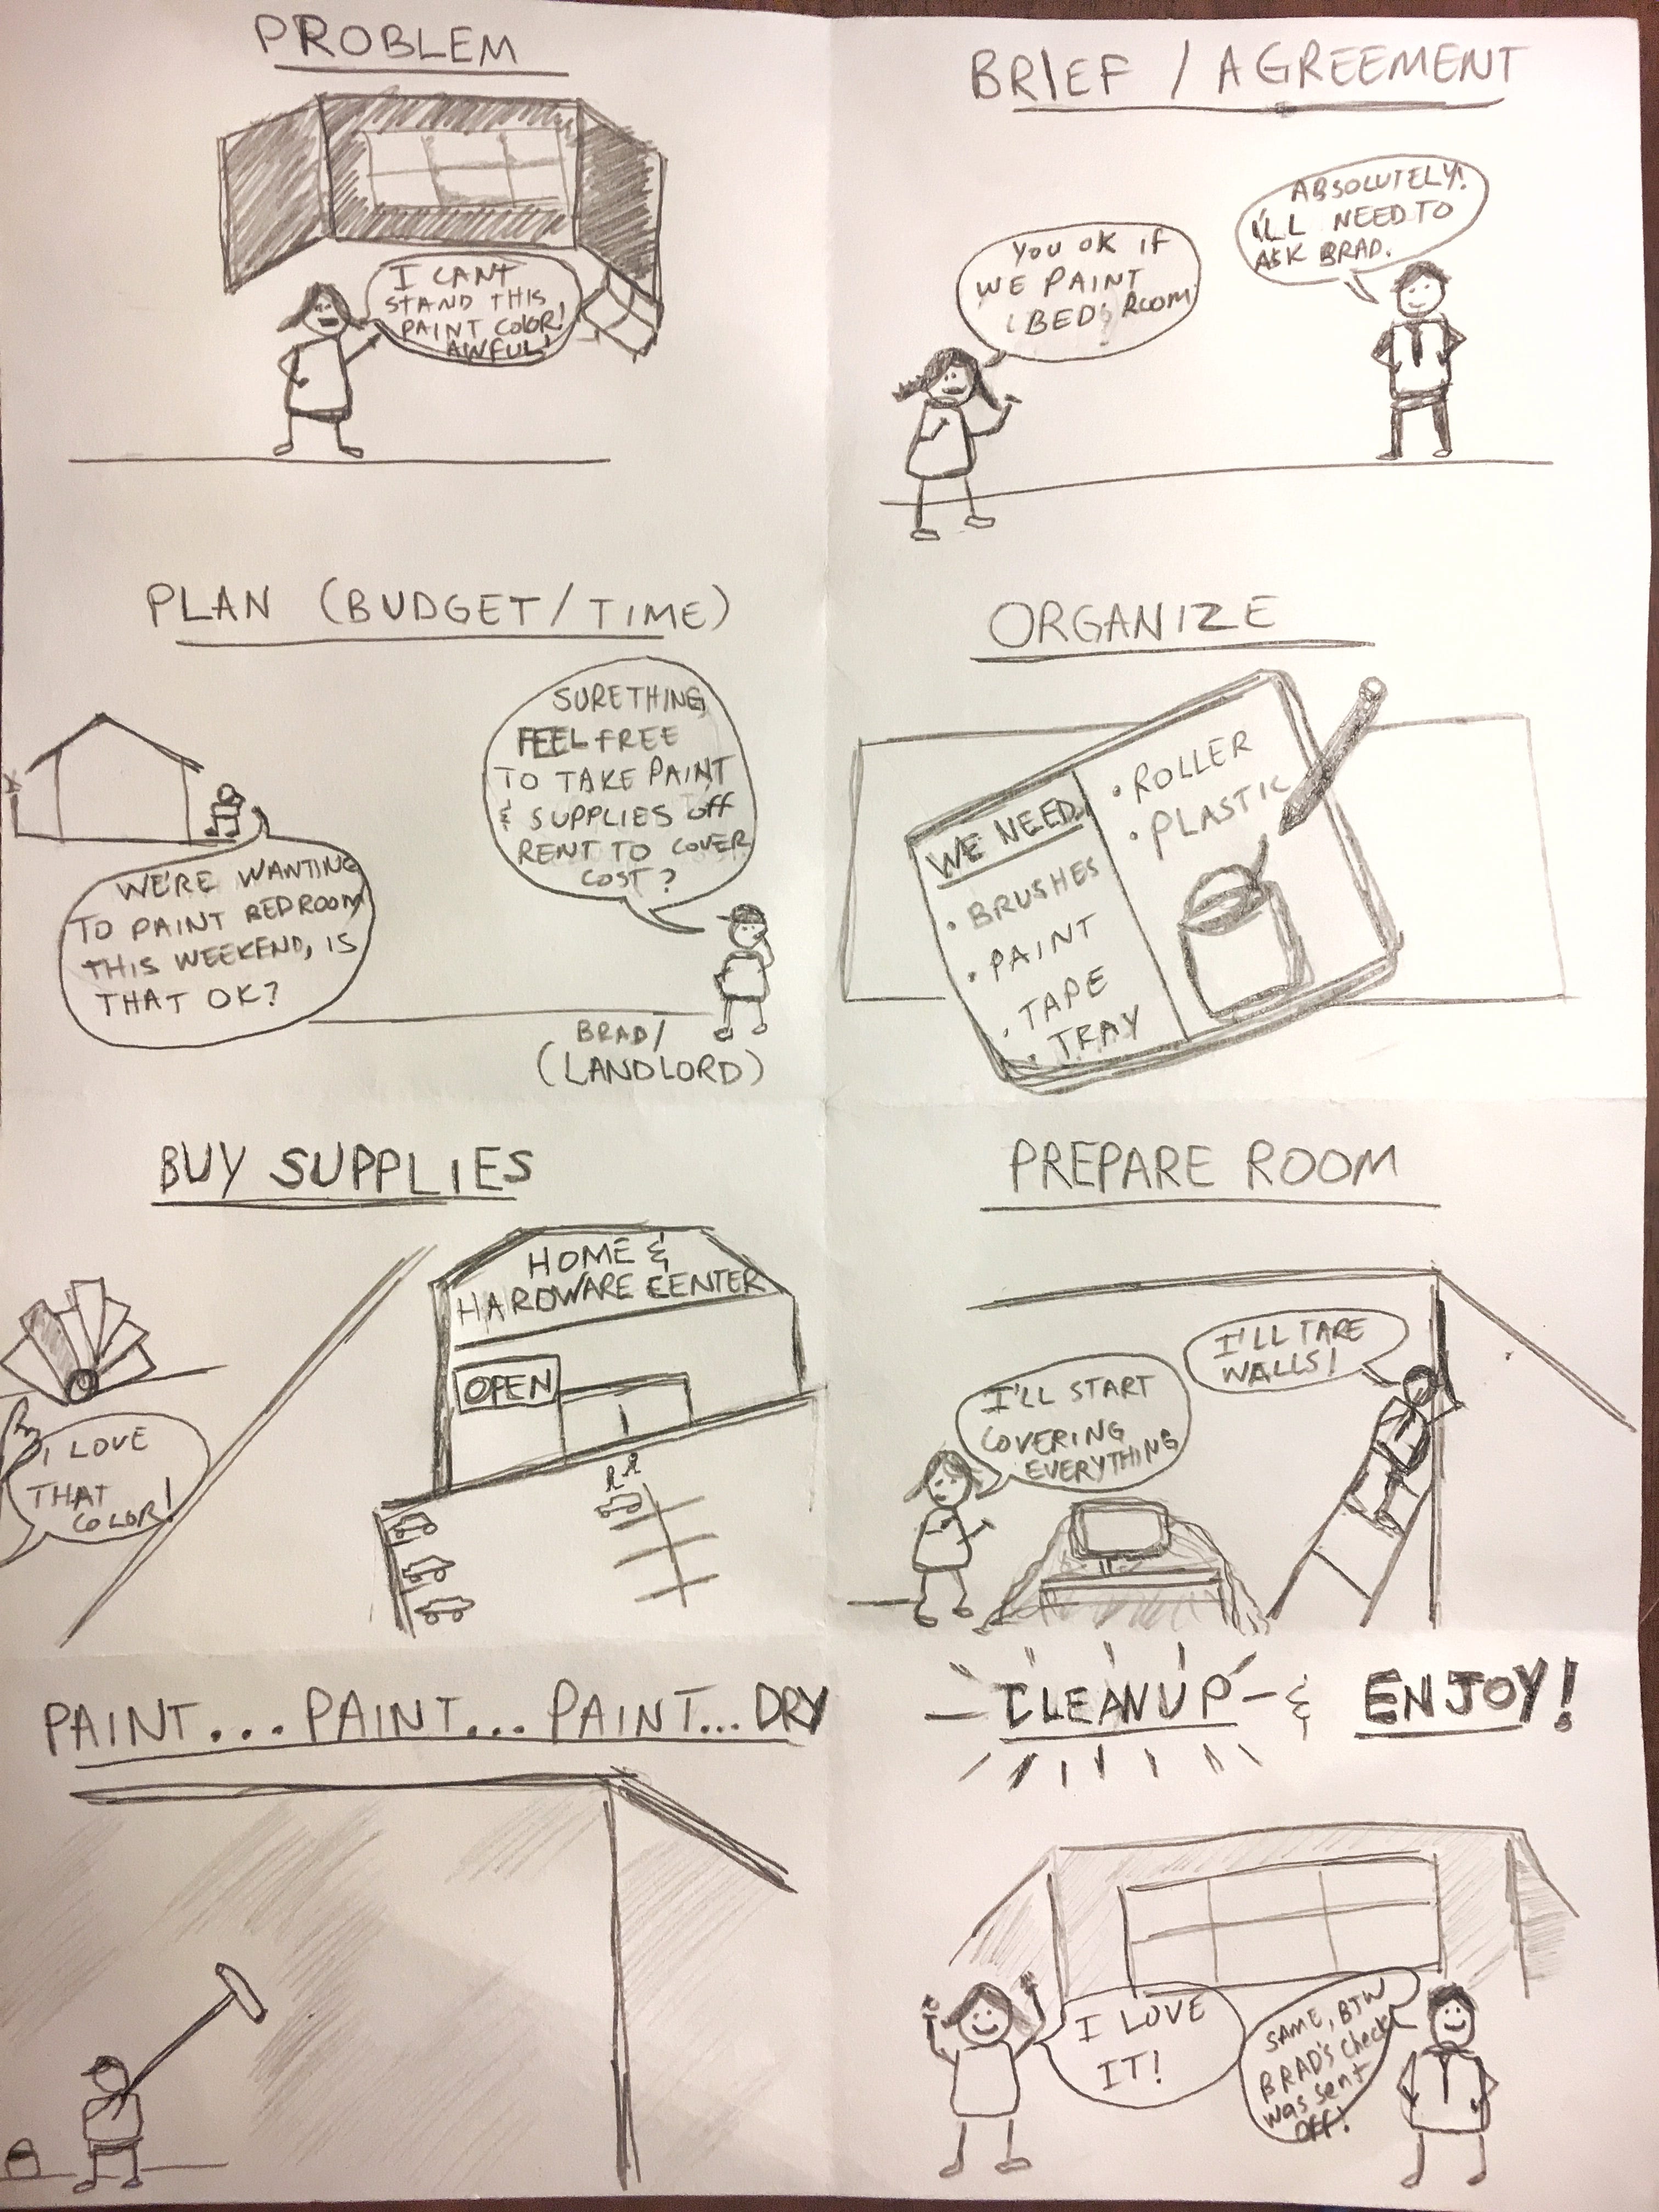 PROBLEM
I CANT
STAND THIS
PAINT COLOR!
AWFUL!
BRIEF / AGREEMENT
YOU OK IF
WE PAINT
BED ROOM
?
ABSOLUTELY!
I'LL NEED TO
ASK BRAD.
PLAN (BUDGET/TIME)
WE'RE WANTING
TO PAINT BEDROOM
THIS WEEKEND, IS
THAT OK?
SURETHING
FEEL FREE
TO TAKE PAINT
& SUPPLIES OFF
RENT TO COVER
COST?
BRAD/
(LANDLORD)
ORGANIZE
WE NEED
• BRUSHES
• PAINT
• TAPE
• TRAY
• ROLLER
• PLASTIC
BUY SUPPLIES
I LOVE
THAT
COLOR!
HOME &
HARDWARE CENTER
OPEN
PREPARE ROOM
I'LL START
COVERING
EVERYTHING
I'LL TAPE
WALLS!
PAINT... PAINT... PAINT... DRY
CLEANUP & ENJOY!
I LOVE
IT!
SAME, BTW
BRAD'S CHECK
WAS SENT
OFF!